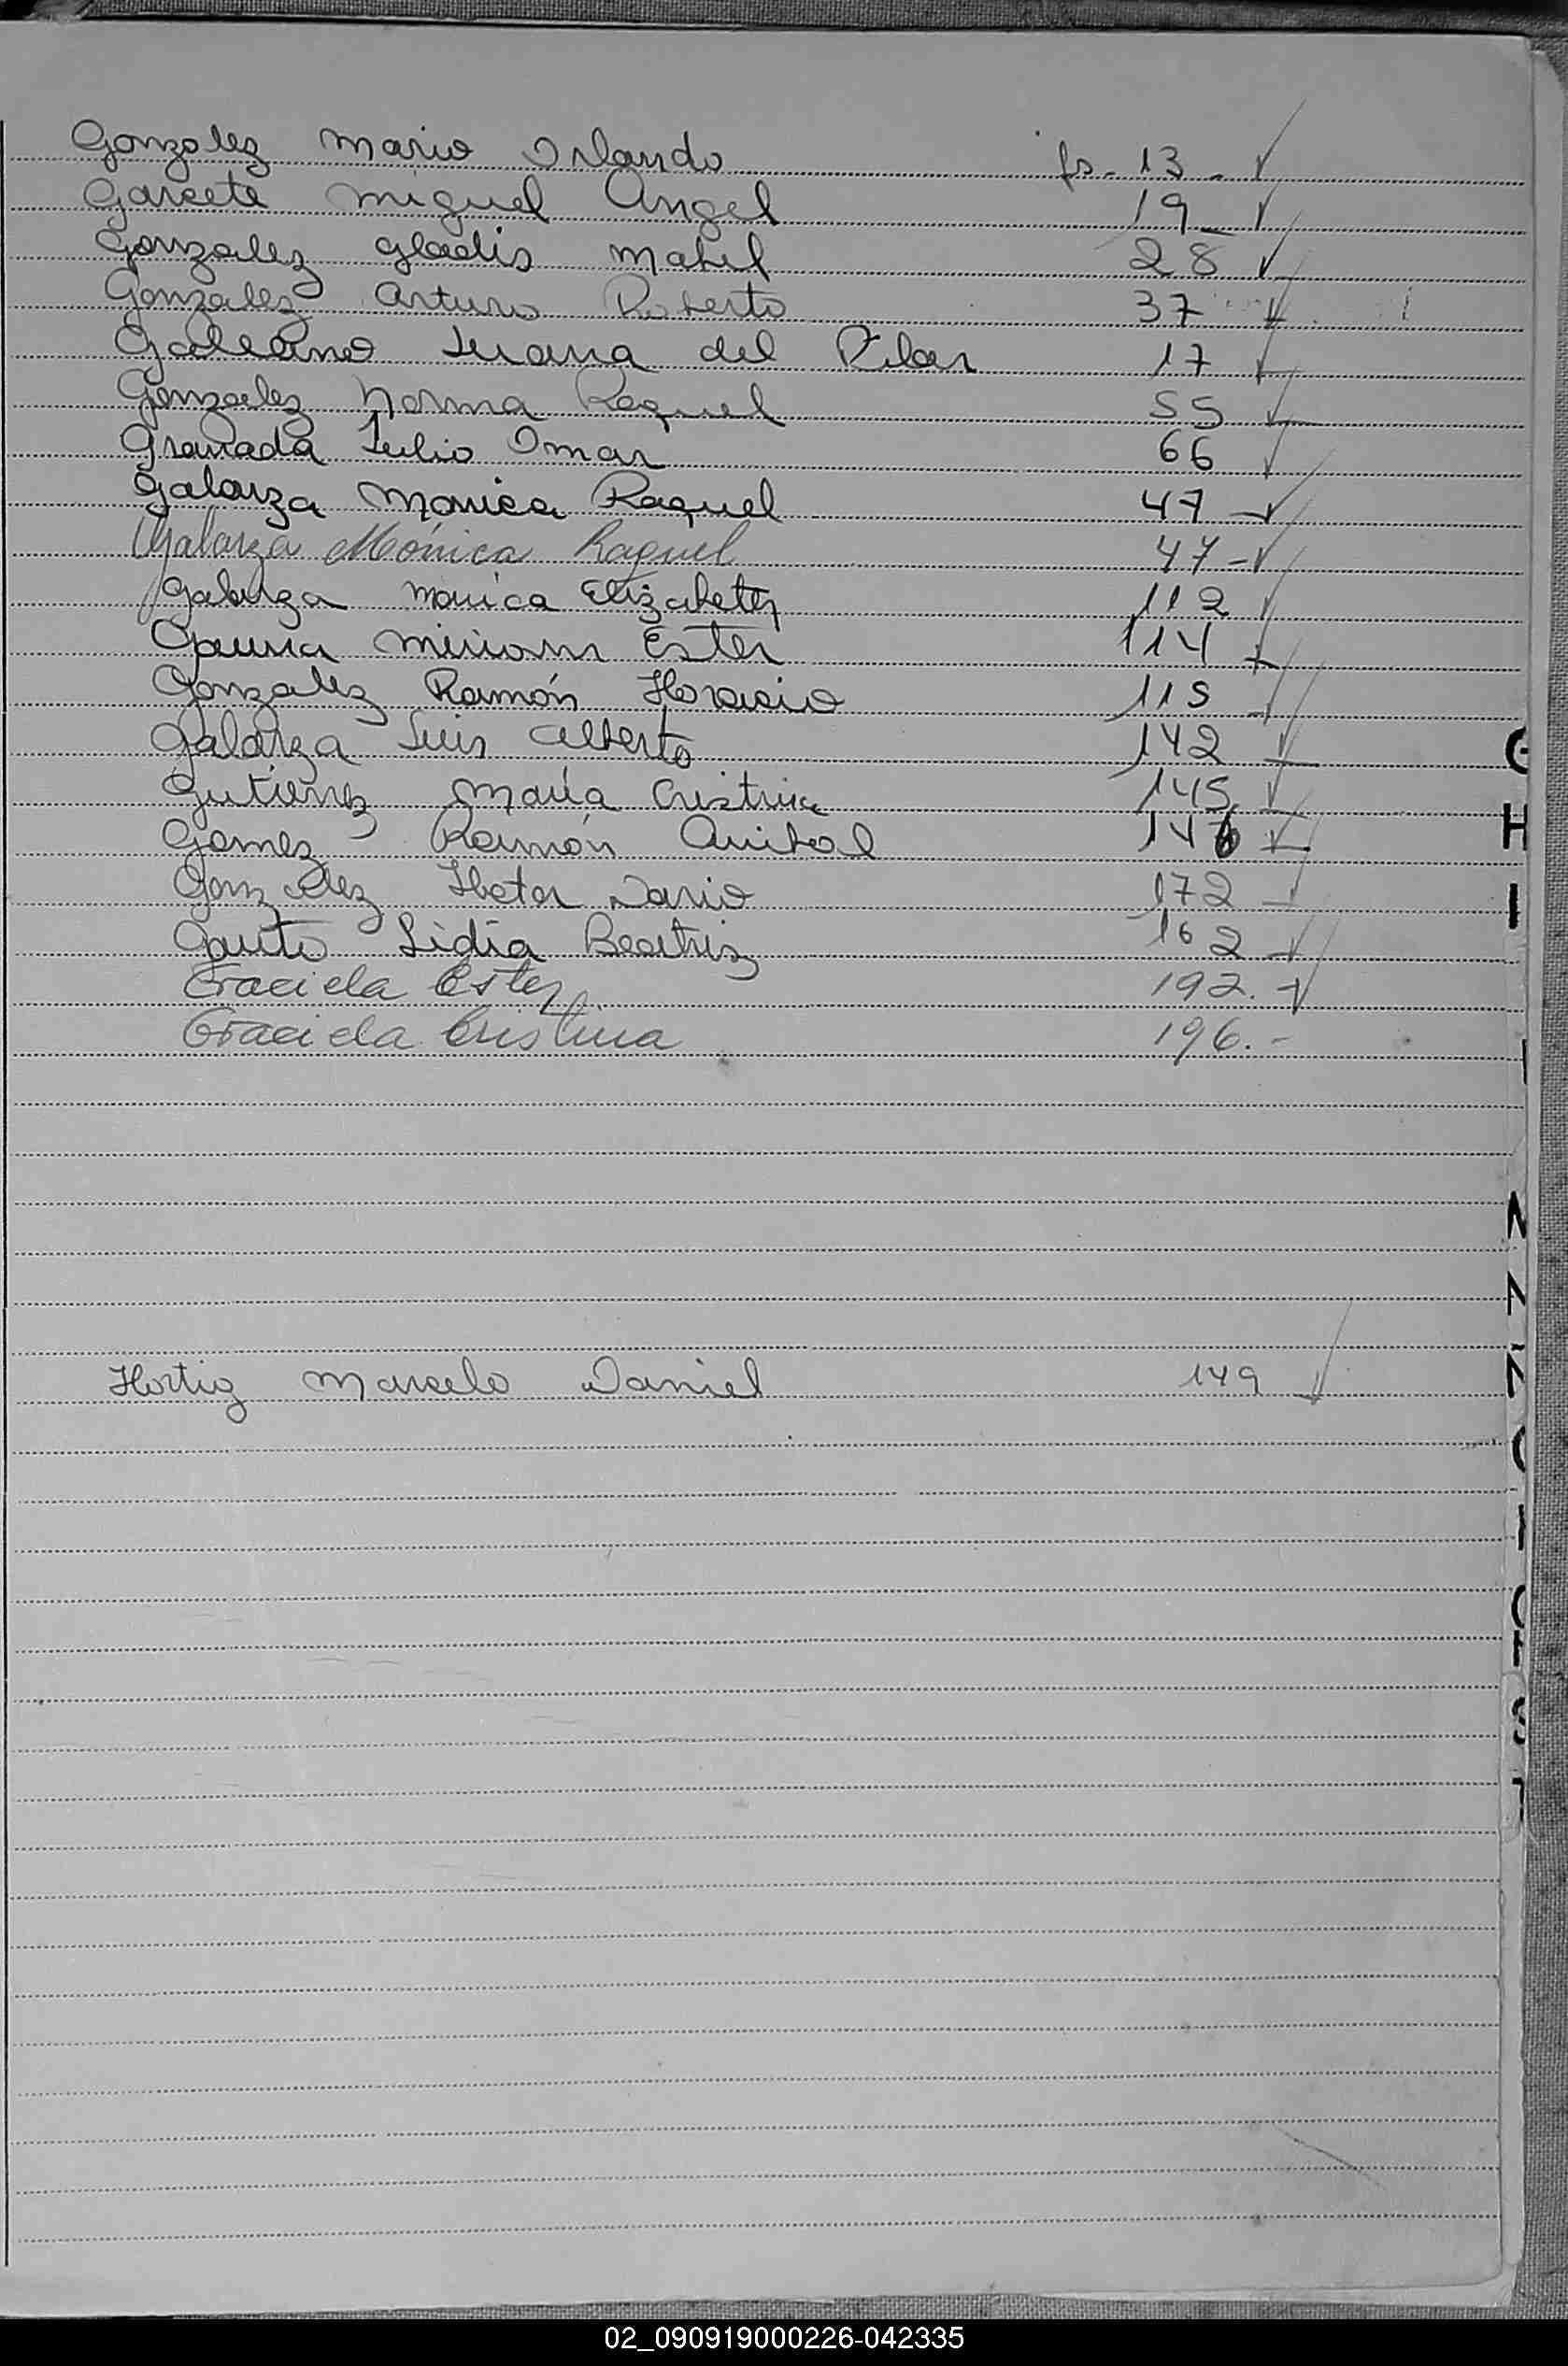 Gonzalez Mario Orlando fs. 13 - ✓
Garcete Miguel Angel 19 - ✓
Gonzalez Gladis Mabel 28 ✓
Gonzalez Arturo Roberto 37 ✓
Galeano Juana del Pilar 17 ✓
Gonzalez Norma Raquel 55 ✓
Granada Julio Omar 66 ✓
Galarza Monica Raquel 47 - ✓
Galarza Mónica Raquel 47 - ✓
Galarza Monica Elizabeth 112 ✓
Gauna Miriam Ester 114 ✓
Gonzalez Ramón Horacio 115 ✓
Galarza Luis Alberto 142 ✓
Gutierrez María Cristina 145 ✓
Gomez Ramón Anibal 146 ✓
Gonzalez Hector Dario 172 ✓
Gauto Lidia Beatriz 162 ✓
Graciela Ester 192. - ✓
Graciela Cristina 196. -
Hortiz Marcelo Daniel 149 ✓
G
H
I
N
S
T
02_090919000226-042335